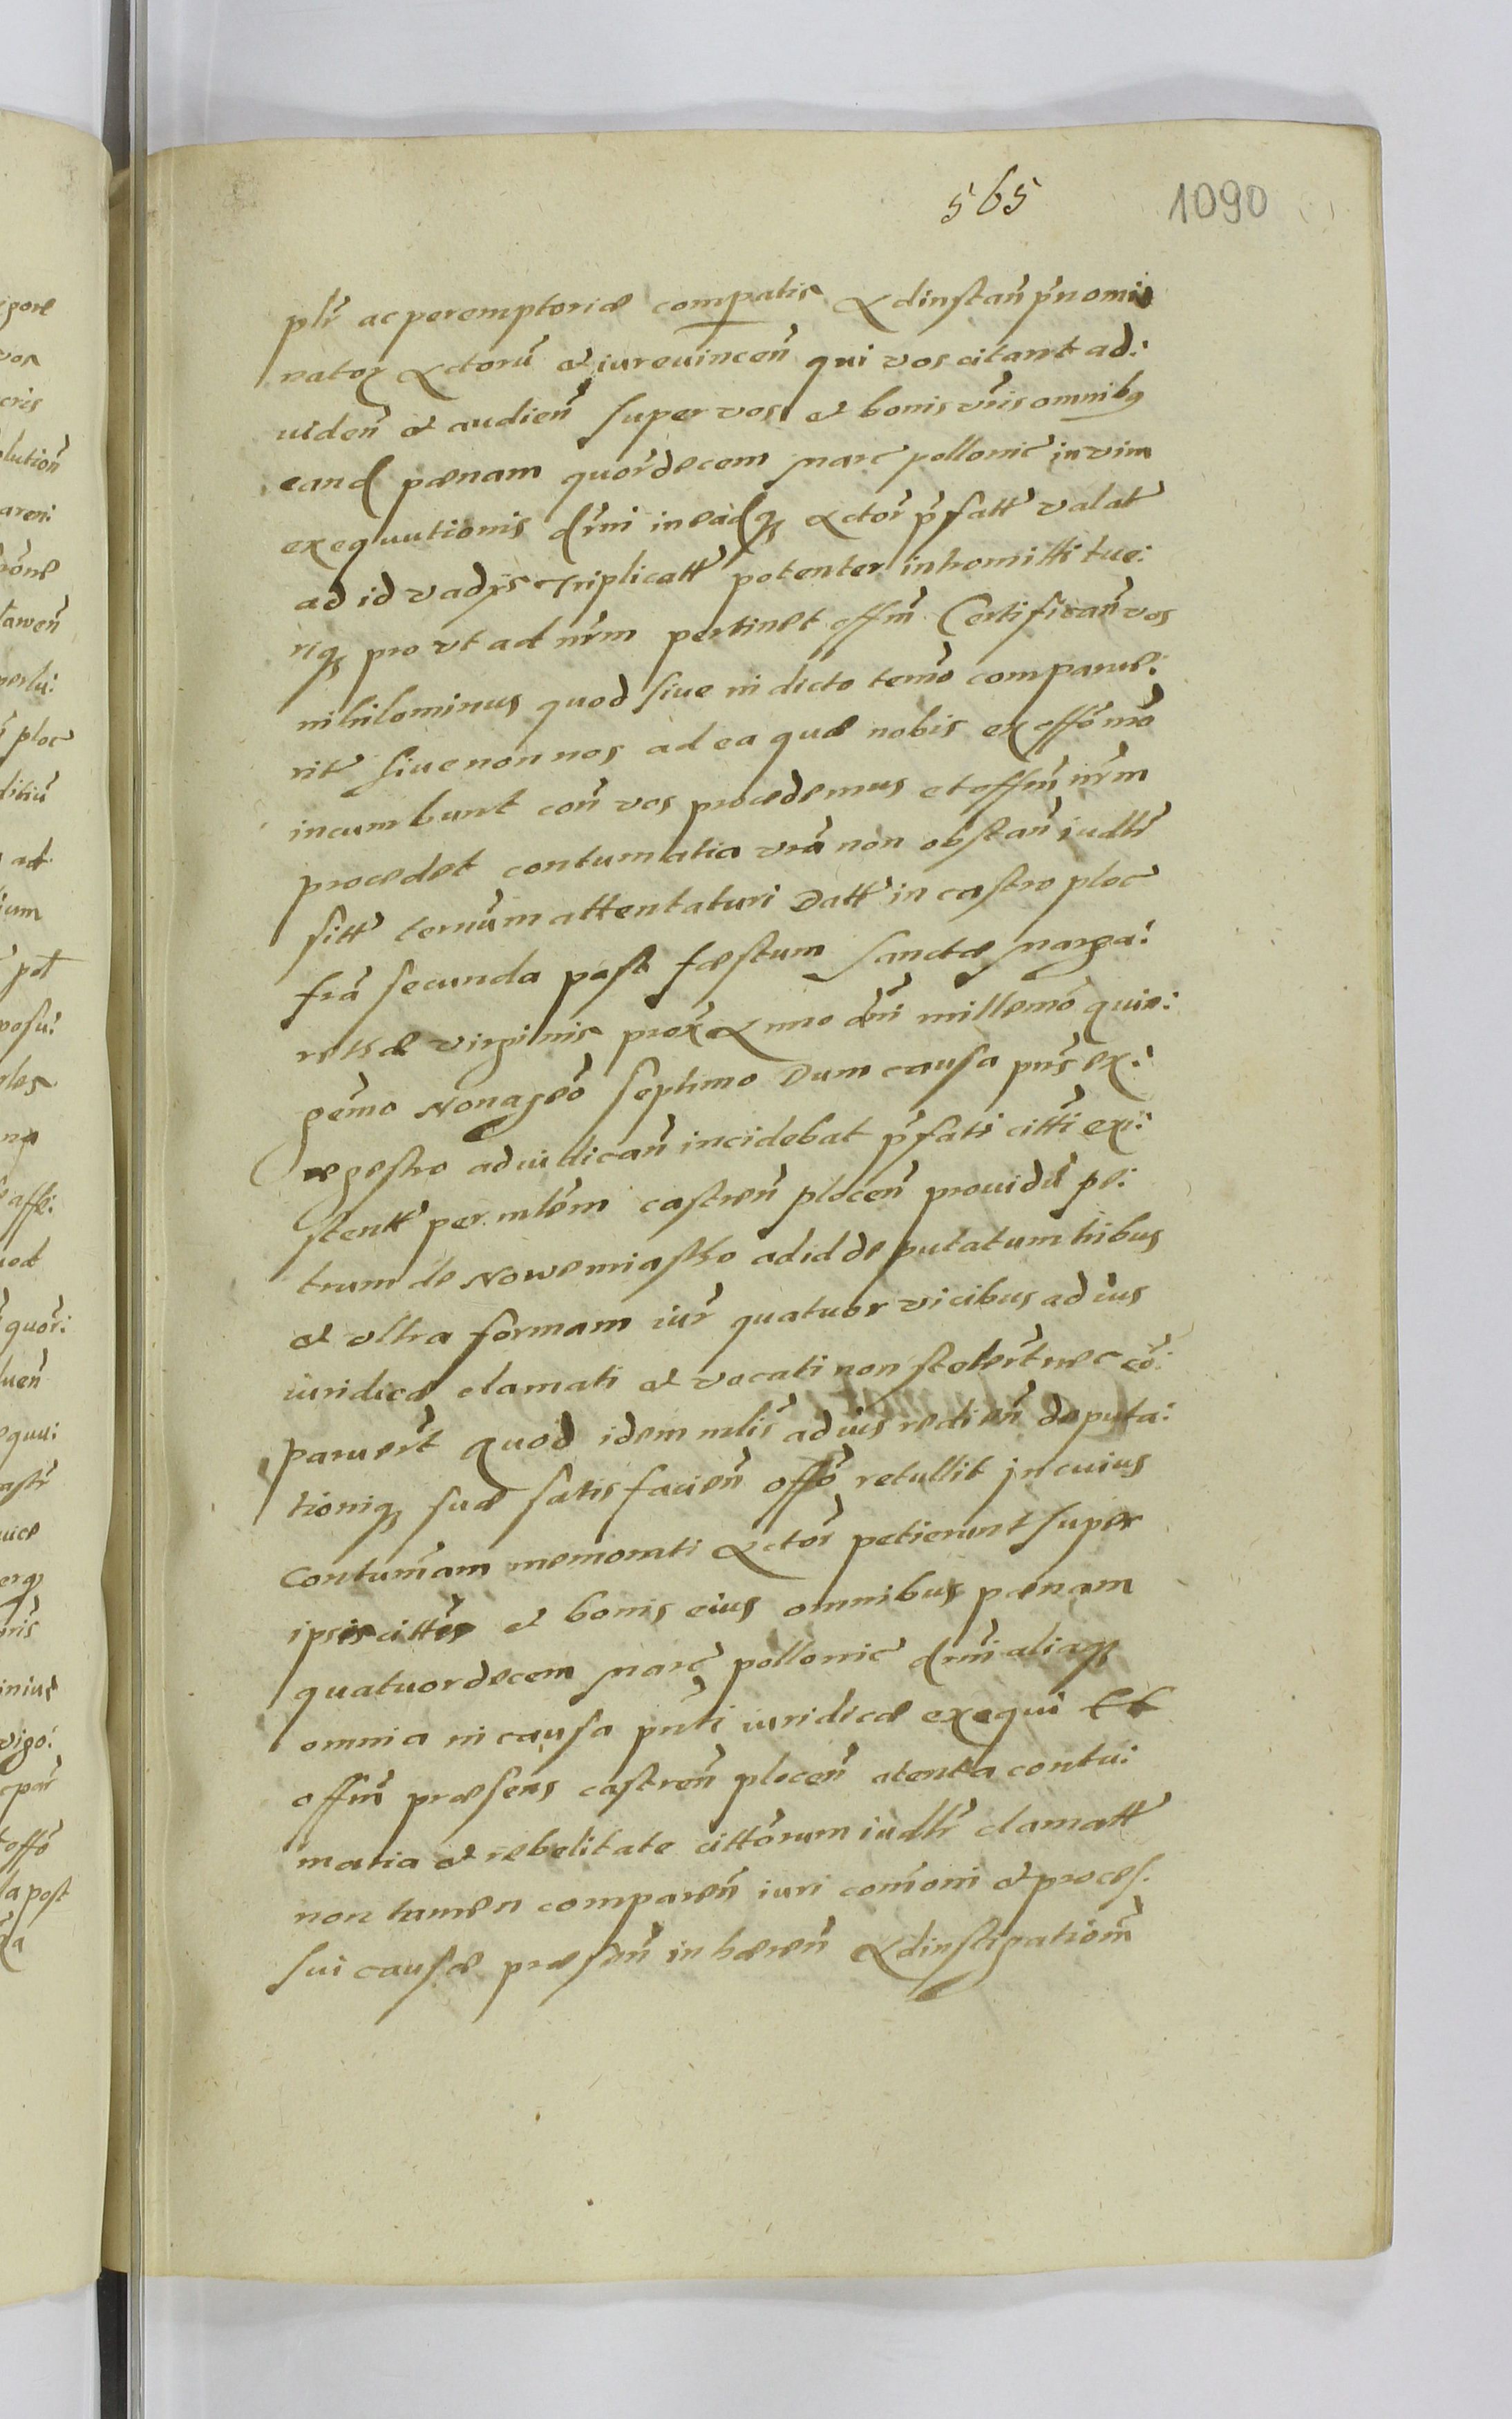 565 1090
plr̃ ac peremptoriæ compatis Adinstañ p̃nomi
natoꝝ Actorũ et iureuinceñ qui vos citant ad:
uideñ et audieñ super vos et bonis vr̃is omnibꝫ
eand pænam quor̃decem marc pollonic in vim
exequutionis dr̃ni in eadqꝫ Actor̃ p̃fatt valat
ad id vadÿs Triplicatt potenter inhomitti tue:
riqꝫ pro vt ad nr̃m pertinet offm̃ Certifficañ vos
nihilominus quod siue in dicto temõ comparue:
rit siue non nos ad ea quæ nobis ex offõ nr̃o
incumbunt coñ vos procedemus et offm̃ nr̃m
procedet contumatia vr̃a non obstañ iudlr̃
sitt ternũm attentaturi Datt in castro ploc
fr̃a secunda post festum Sanctæ marga:
rethæ virginis prox̃ Anno dñi millemõ quin:
gẽmo Nonageõ septimo Dum causa pñs ex:
Regestro adiudicañ incidebat p̃fati citti exi:
stentt per mlẽm castreñ ploceñ prouidũ pe:
trum de Nowemiastko ad id deputatum tribus
et vltra formam iur̃ quatuor vicibus ad ius
iuridicæ clamati et vocati non steter̃t nec cõ:
paruer̃t quod idem mlis̃ ad ius redieñ deputa:
tioniqꝫ suæ satis facieñ offõ retullit in cuius
Contumãm memorati Actor̃ petierunt super
ipsis cittis et bonis eius omnibus pænam
quatuordecem marc pollonic dr̃ni aliaqꝫ
omnia in causa pñti iuridicæ exequi Et
offm̃ præsens castreñ ploceñ atenta contu:
matia et rebelitate cittõrum iudlr̃ clamatt
non tamen compareñ iuri com̃oni et proces.
sui causæ præseñ inhæreñ Adinstigatiom̃